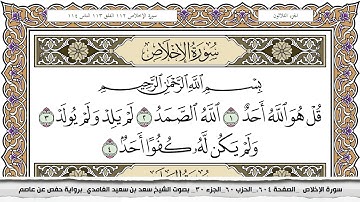 الجزء الثلاثون
سورة الإخلاص ١١٢ الفلق ١١٣ الناس ١١٤
سُورَةُ الإِخْلَاصِ
بِسْمِ اللَّهِ الرَّحْمَٰنِ الرَّحِيمِ
قُلْ هُوَ اللَّهُ أَحَدٌ ١ اللَّهُ الصَّمَدُ ٢ لَمْ يَلِدْ وَلَمْ يُولَدْ ٣
وَلَمْ يَكُن لَّهُۥ كُفُوًا أَحَدٌ ٤
سورة الإخلاص _ الصفحة ٦٠٤ _ الحزب ٦٠ _ الجزء ٣٠ _ بصوت الشيخ سعد بن سعيد الغامدي _ برواية حفص عن عاصم